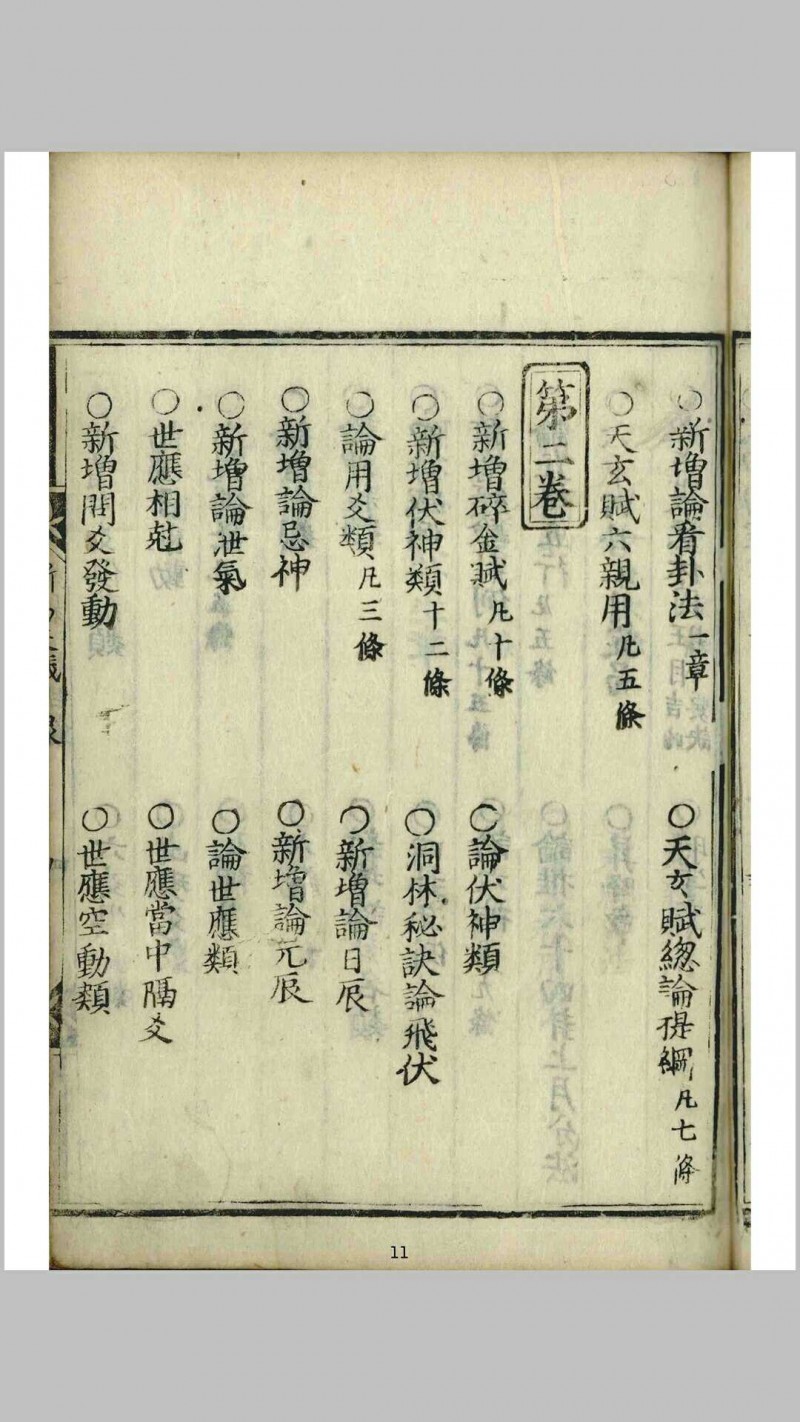 ○新增論看卦法一章 ○天玄賦緫論提綱凡七條
○天玄賦六親用凡五條
第二卷
○新增碎金賦凡十條 ○論伏神類
○新增伏神類十二條 ○洞林秘訣論飛伏
○論用爻類凡三條 ○新增論日辰
○新增論忌神 ○新增論元辰
○新增論泄氣 ○論世應類
○世應相尅 ○世應當中隔爻
○新增間爻發動 ○世應空動類
11